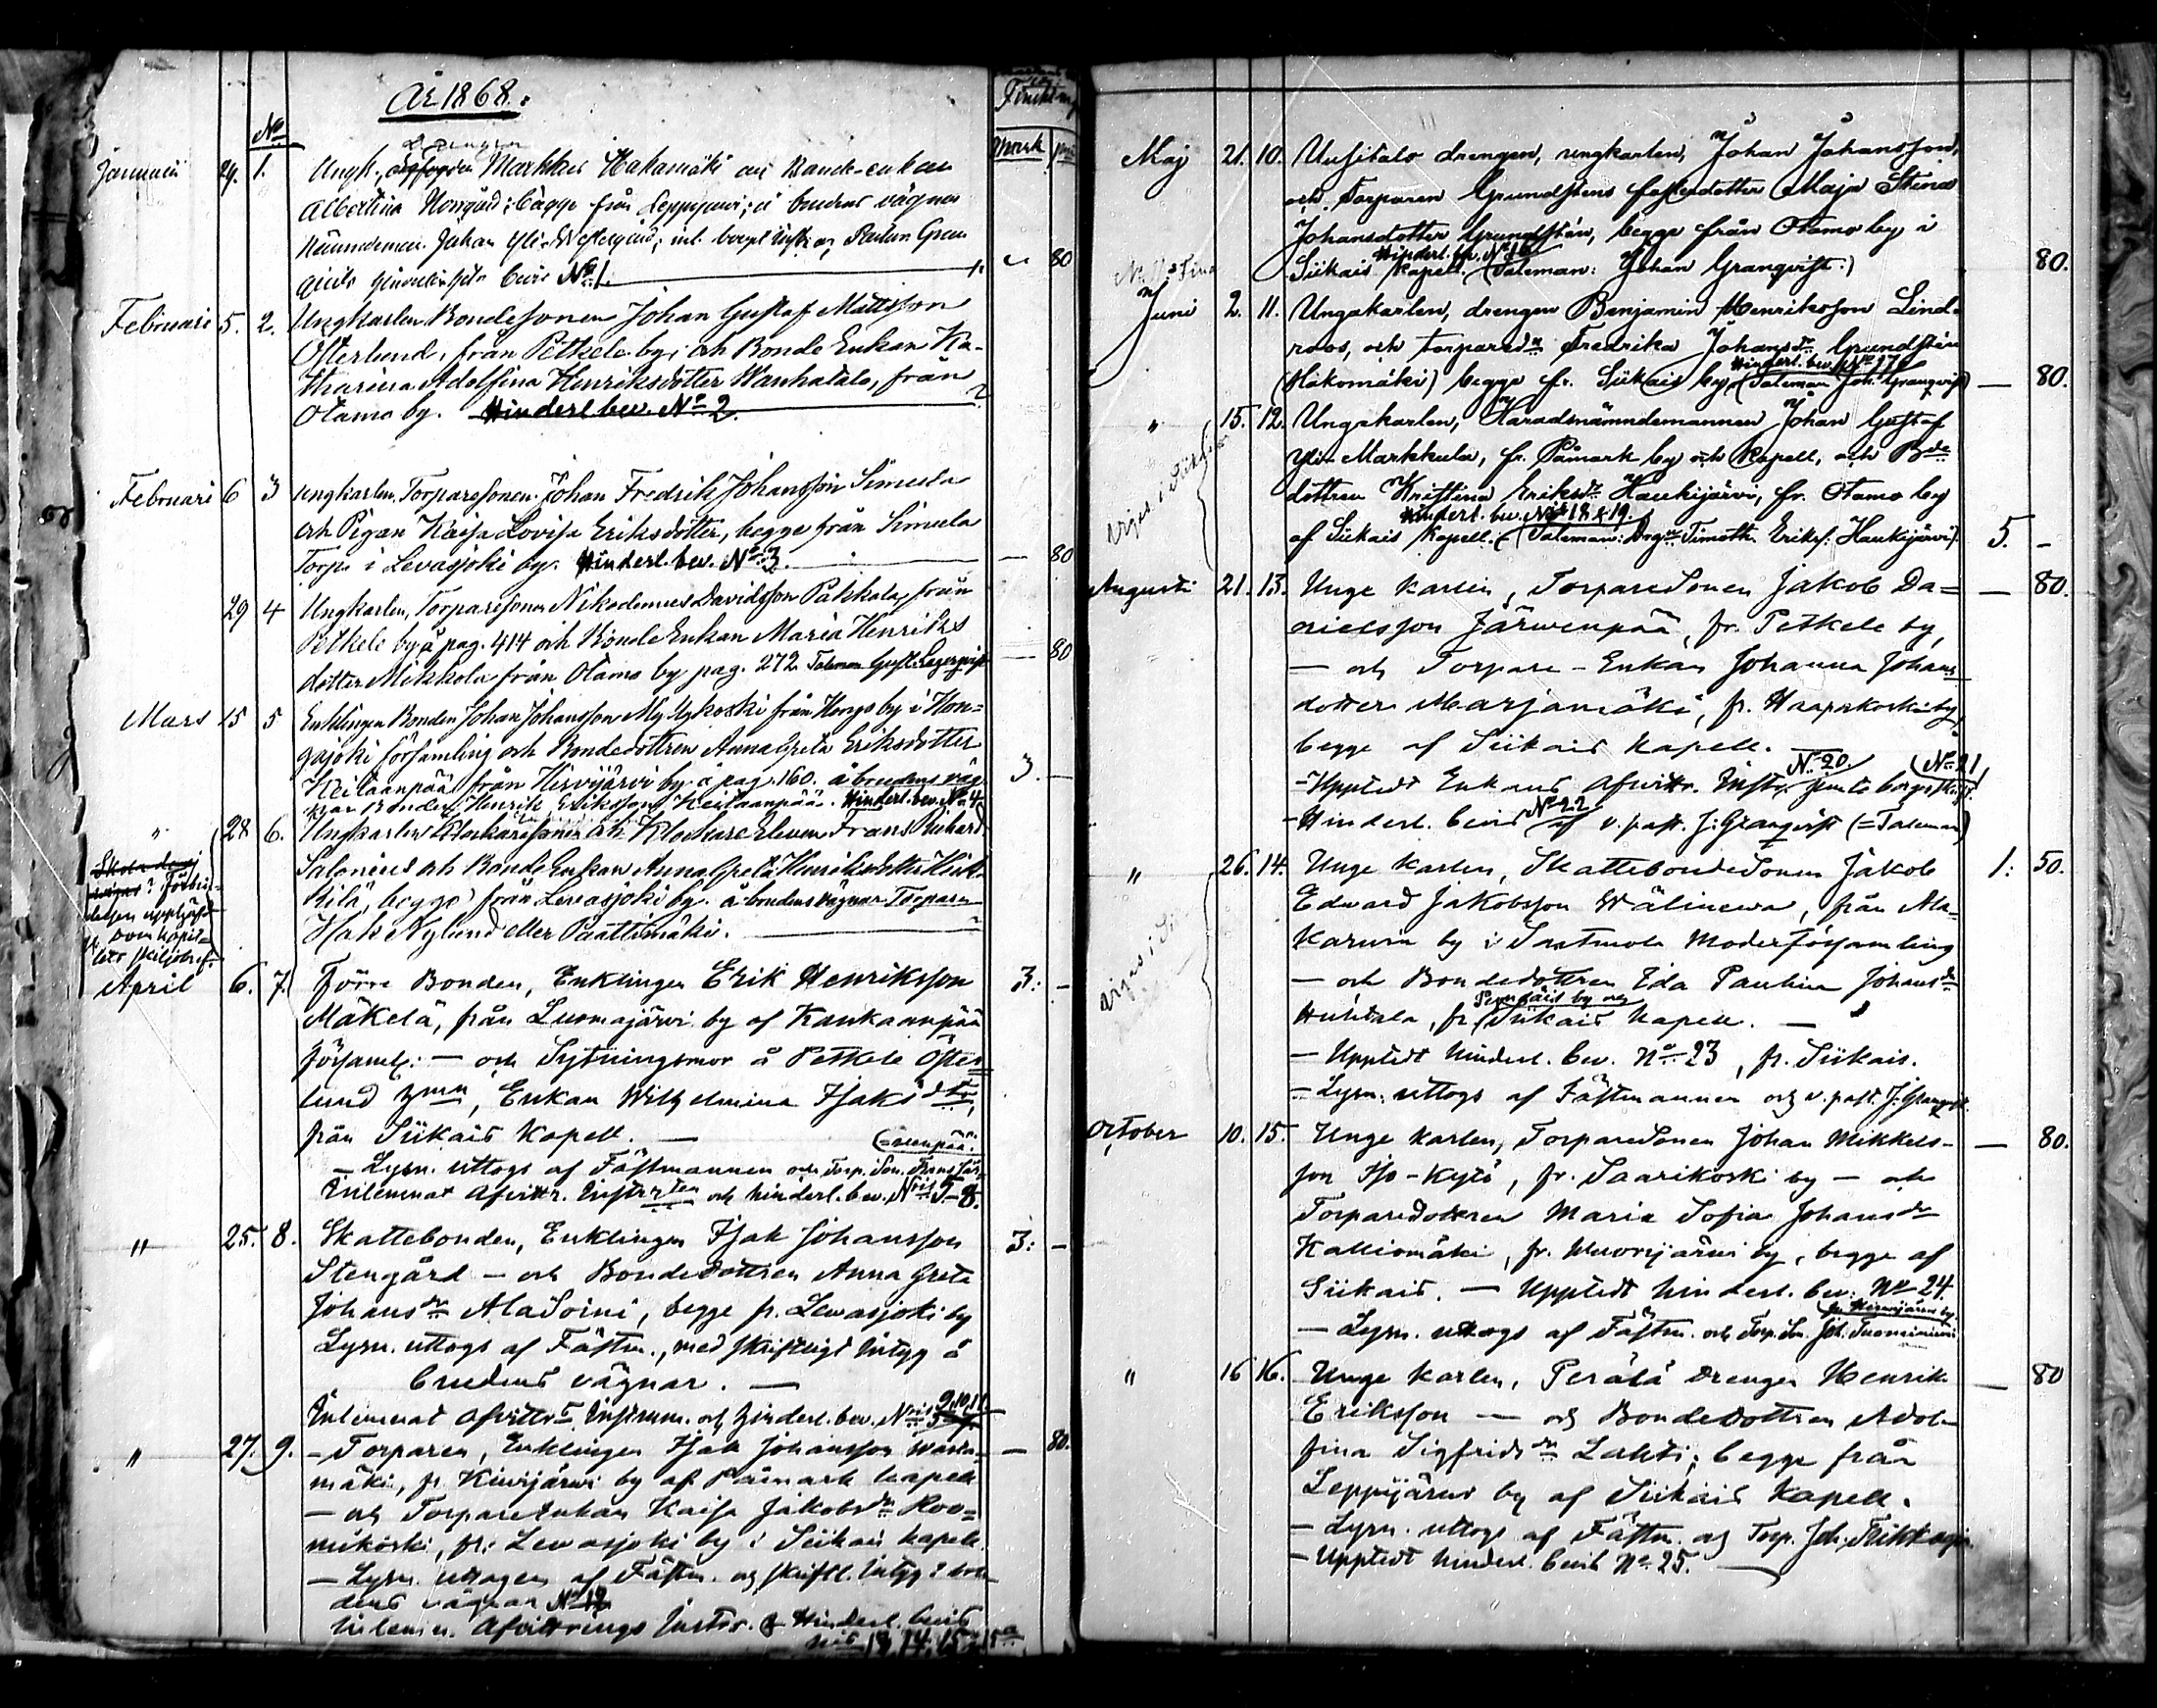 År 1868.
No
Mark
Januarii 29. 1. Ungk. Drengen Markkus Hakamäki och Bonde-enkan
Albertina Norrgård; bägge från Leppijervi; å brudens vägnar
Nämndeman Johan Yli-Westergård; inl.
bevis No 1. 80
Februari 5. 2. Ungkarlen Bondesonen Johan Gustaf Mattsson
Österlund, från Petkele by; och Bonde Enkan Ka-
tharina Adolfina Henriksdotter Wanhatalo, från
Otamo by. Hinderl. bev. No 2.
Februari 6 3 Ungkarlen, Torparesonen Johan Fredrik Johansson Simula
och Pigan Kaisa Lovisa Eriksdotter, begge från Simula
Torp i Levasjoki by. Hinderl. bev. No 3. — 80
29 4 Ungkarlen, Torparesonen Nikodemus Davidsson Pakkala, från
Petkele by å pag. 414 och Bonde Enkan Maria Henriks
dotter Mikkola från Otamo by pag. 272 Talman Gust. Lagerqvist — 80
Mars 15 5 Enklingen Bonden Johan Johansson Mykoski från Hongo by i Hon-
gojoki församling och Bondedottren Anna Greta Eriksdotter
Keilaanpää från Hirvijärvi by å pag. 160. å brudens väg- 3. —
nar Bonden Henrik Eriksson Keilaanpää. Hinderl. bev. No 4
" 28 6. Ungkarlen Klockaresonen och Klockare Eleven Frans Richard
Salonius och Bonde Enkan Anna Greta Henriksdotter Heik-
kilä, begge från Levasjoki by. å brudens vägnar Torparen
Isak Nylund eller Paattimäki.
April 6. 7. Förre Bonden, Enklingen Erik Henriksson 3: -
Mäkelä, från Luomajärvi by af Kankaanpää
församl: — och Sytningsmor å Petkele Öster
lund hmn, Enkan Wilhelmina Isaksdtr,
från Siikais Kapell. —
— Lysn. uttogs af Fästmannen och Torp. Son. Frans Jär-
(=venpää.
Inlemnat Afvittr. Instr. och hinderl. bev. Nris 5-8.
" 25. 8. Skattebonden, Enklingen Isak Johansson 3: -
Stengård — och Bondedottren Anna Greta
Johansdr AlaSoini, begge fr. Levasjoki by
Lysn. uttogs af Fästm., med skriftligt Intyg å
brudens vägnar. —
Inlemnat Afvittr Instrum. och hinderl. bev. Nris 9,10,11
" 27. 9. — Torparen, Enklingen Isak Johansson — 80.
mäki, fr. Kivijärvi by af Påmark kapell
— och TorpareEnkan Kaisa Jakobsdr Roo=
mikoski, fr. Levasjoki by i Siikais kapell.
— Lysn. uttogen af Fästm. och skriftl. Intyg å bru-
dens vägnar No 12
Inlemn. Afvittrings Instr. & Hinderl. bevis
No 13, 14, 15 15a
Maj 21. 10. Uusitalo drengen, ungkarlen, Johan Johansson,
och Torparen Grundstens fosterdotter Maja Stina
Johansdotter Grundstén, begge från Otamo by i
Hinderl. bev. No 16
Siikais Kapell. (Taleman: Johan Granqvist.) 80.
Juni 2. 11. Ungakarlen, drengen Benjamin Henriksson Lind-
roos, och torparedn Fredrika Johansdr Grundstén
Hinderl. bev. No 17
(Hakomäki) begge fr. Siikais by. (Taleman Joh. Granqvist) — 80.
" 15. 12. Ungakarlen, Häradsnämndemannen Johan Gustaf
Yli-Markkula, fr. Påmark by och Kapell, och Bde
dottren Kristina Eriksdr Haukijärvi, fr. Otamo by
Hinderl. bev. No 18 & 19.
af Siikais Kapell. (Taleman: Drgn Timoth. Eriks: Haukijärvi) 5. -
Augusti 21. 13. Unge Karlen, TorpareSonen Jakob Da= — 80.
nielsson Järwenpää, fr. Petkele by,
— och Torpare-Enkan Johanna Johans
dotter Marjamäki, fr. Haapakoski by,
begge af Siikais Kapell.
No 20. No 21
— Upptedt Enkans Afvittr. Instr. jemte
No 22
— Hinderl. bevis af v. past. J. Granqvist (=Taleman)
" 26. 14. Unge Karlen, SkattebondeSonen Jakob 1: 50.
Edward Jakobsson Wälinewa, från Ala-
Karvia by i Sastmola Moderförsamling
— och Bondedottren Eda Paulina Johansdr
by och
Huhtala, fr. Siikais Kapell. —
— Upptedt hinderl. bev. No 23, fr. Siikais.
— Lysn. uttogs af Fästmannen och v. past. J. Granqvist.
October 10. 15. Unge Karlen, TorpareSonen Johan Mikkels- — 80.
son Iso-Kytö, fr. Saarikoski by — och
Torparedottren Maria Sofia Johansdr
Kalliomäki, fr. Wuorijärvi by, begge af
Siikais. — Upptedt hinderl. bev. No 24.
fr. Hirvijärvi by
— Lysn. uttogs af Fästm. och Torp. Sn. Joh. Tuominiemi
" 16 16. Unge Karlen, Perälä drengen Henrik — 80
Eriksson — och Bondedottren Adol-
fina Sigfridsdr Lahti; begge från
Leppijärvi by af Siikais Kapell.
— Lysn. uttogs af Fästm. och Torp. Joh.
— Upptedt hinderl. bevis No 25. —